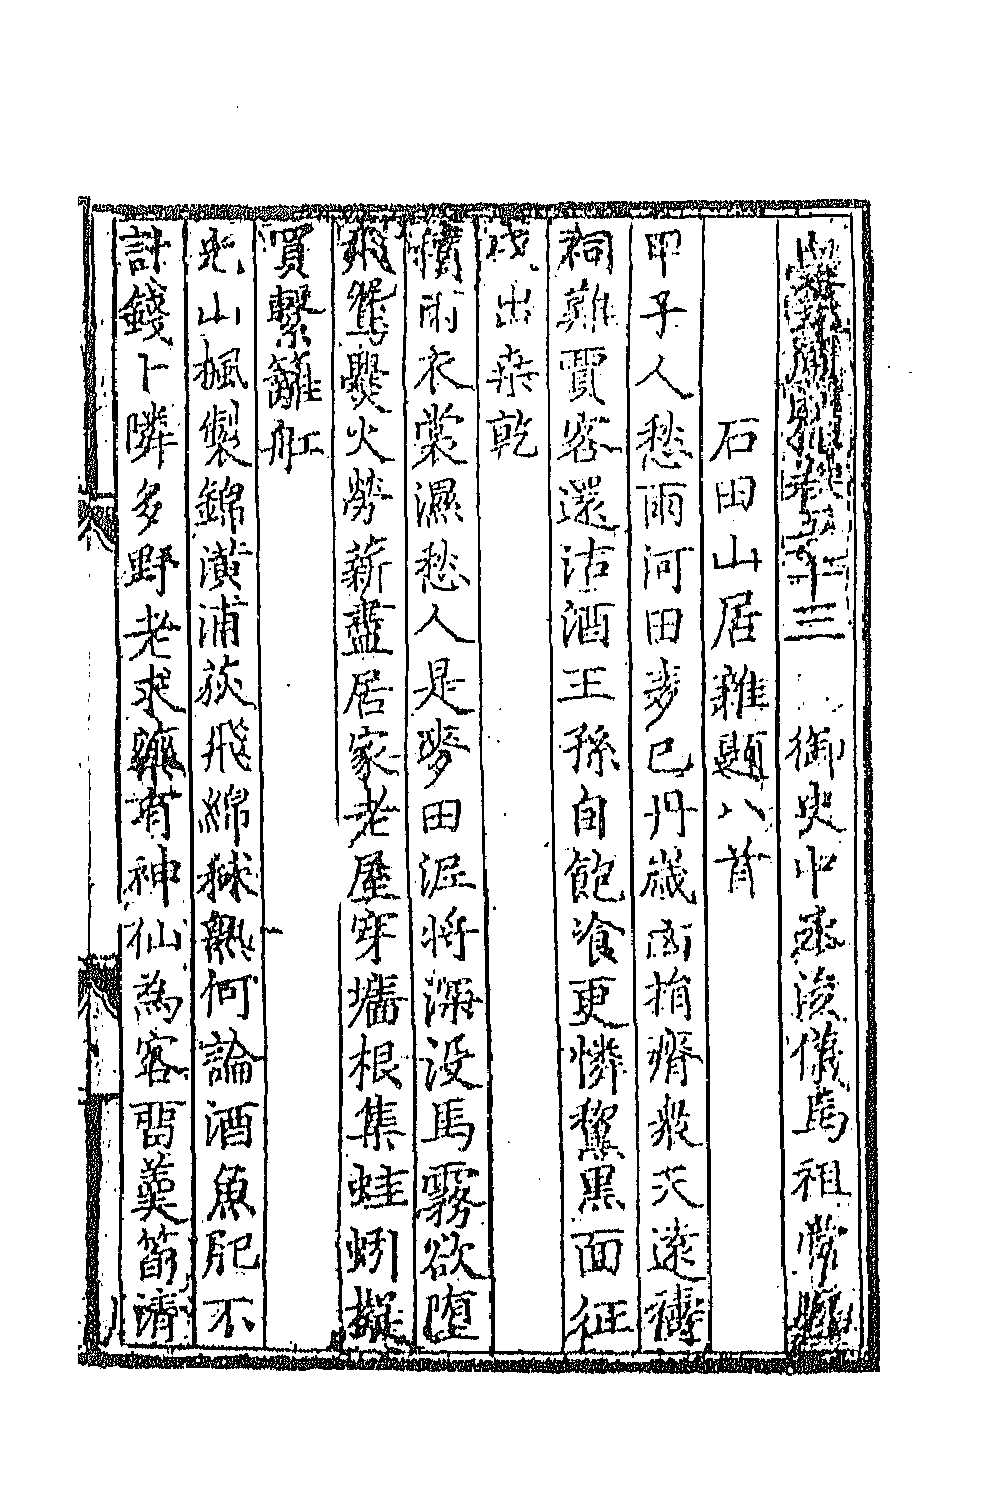 五十三 御史中丞浚儀馬祖常
石田山居雜題八首
甲子人愁雨河田麥已丹歲凶捐瘠衆天遠禱
祠難賈客還沽酒王孫自飽飡更憐黧黑面征
戍出桑乾
積雨衣裳濕愁人是麥田泥將深没馬霧欲墮
飛鳶㸑火勞薪盡居家老屋穿墻根集蛙蚓擬
買繫籬舡
光山楓製錦潢浦荻飛綿秫熟何論酒魚肥不
計錢卜隣多野老求藥有神仙爲客留羮笛清